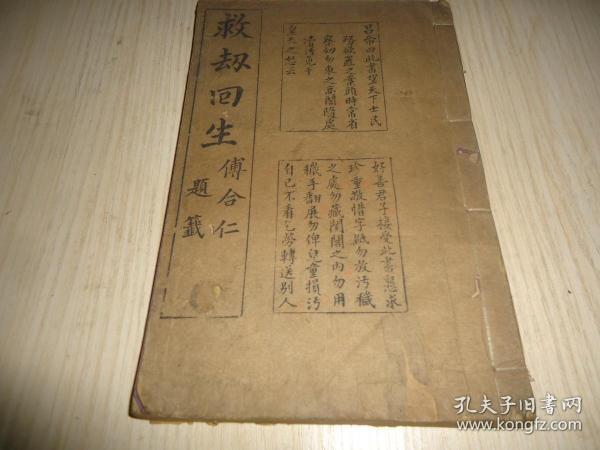 呂帝曰此書望天下士民
務敬置之案頭時常省
察切勿束之高閣隨處
漬污冤干
皇天之怒云
好善君子接受此書懇求
珍重敬惜字紙勿放污穢
之處勿藏閨閫之內勿用
穢手翻展勿俾兒童損污
自己不看乞勞轉送別人
救劫回生
傅合仁
題籤
孔夫子旧书网
www.kongfz.com